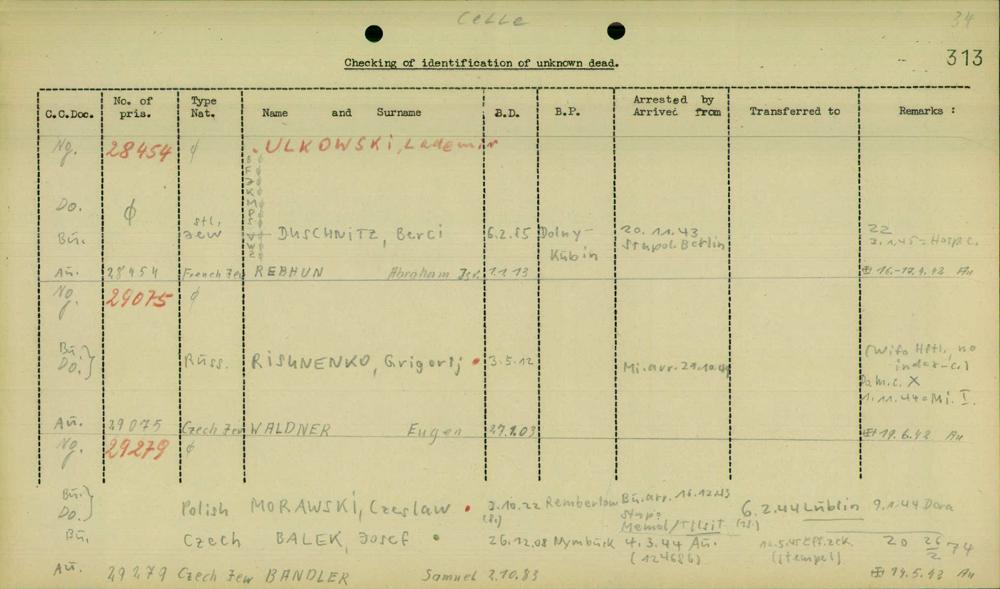 Celle 34
313
Checking of identification of unknown dead.
C.C.Doc. No. of pris. Type Nat. Name and Surname B.D. B.P. Arrested by Arrived from Transferred to Remarks :
Ng. 28454 ∅ ULKOWSKi, Lademir
Do. ∅
Bü. stl. Jew DUSCHNiTZ, Berci 6.2.85 Dolny-Kübin 20.11.43 Stapol. Berlin 22 2.1.45 = Hosp.
Au. 28454 French Jew REBHUN Abraham Isr. 1.1.13 16.-17.9.42 Au
Ng. 29075 ∅
Bü. Do.} Russ. RiSHNENKO, Grigorij 3.5.12 Mi. arr. 29.10.44 (Wifo Hftl., no index-c.)
Da m.c. X
1.11.44 = Mi. I.
Au. 29075 Czech Jew WALDNER Eugen 19.6.42 Au
Ng. 29279 ∅
Bü. Do.} Polish MORAWSKi, Czeslaw 3.10.22 Rembertow Bü. arr. 16.12.43 Stapo Memel/Tilsit 6.2.44 Lüblin 9.1.44 Dora
Bü. Czech BALEK, Josef 26.12.08 Nymbürk 4.3.44 Au. (124686) (stempel) 20 26/2 74
Au. 29279 Czech Jew BANDLER Samuel 2.10.83 19.5.42 Au